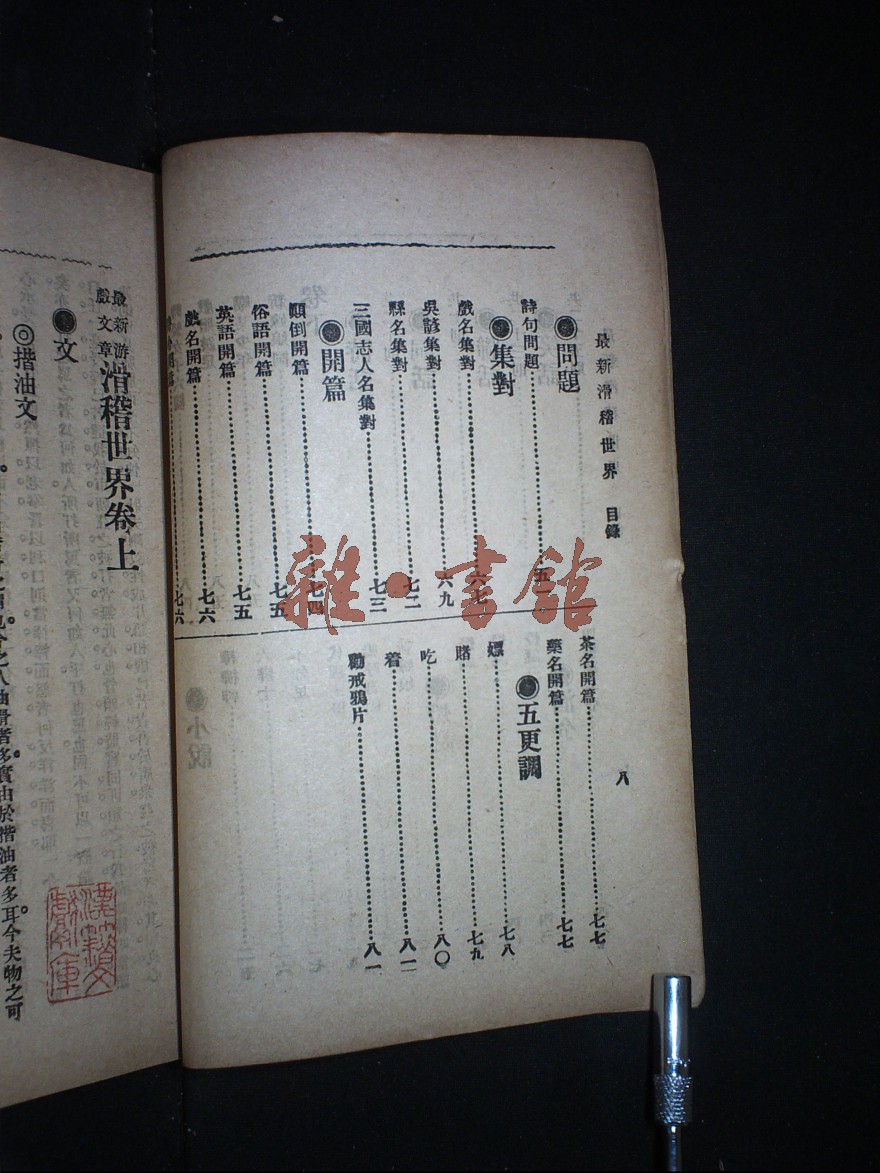 最新滑稽世界　目錄
●問題
詩句問題……五一
●集對
戲名集對……六七
吳諺集對……六九
縣名集對……七二
三國志人名集對……七三
●開篇
顛倒開篇……七四
俗語開篇……七五
英語開篇……七五
戲名開篇……七六
開篇……七六
茶名開篇……七七
藥名開篇……七七
●五更調
嫖……七八
賭……七九
吃……八〇
着……八一
勸戒鴉片……八一
八
雜·書館
最新游戲文章滑稽世界卷上
●文
◎揩油文
油滑者多實由於揩油者多耳今夫物之可